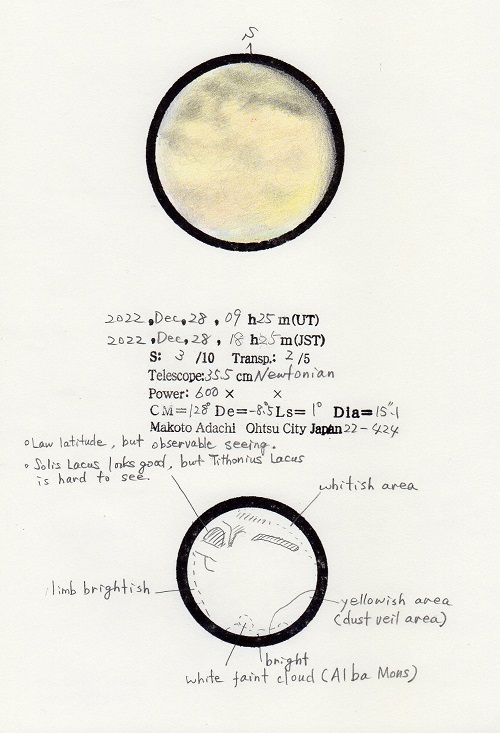 S
2022, Dec, 28, 09 h 25 m (UT)
2022, Dec, 28, 18 h 25 m (JST)
S: 3 /10 Transp.: 2 /5
Telescope: 35.5 cm Newtonian
Power: 600 × ×
CM=128° De=-8.5° Ls= 1° Dia=15".1
Makoto Adachi Ohtsu City Japan 22-424
○ Law latitude, but observable seeing.
○ Solis Lacus looks good, but Tithonius Lacus
is hard to see.
whitish area
limb brightish
yellowish area
(dust veil area)
bright
white faint cloud (Alba Mons)